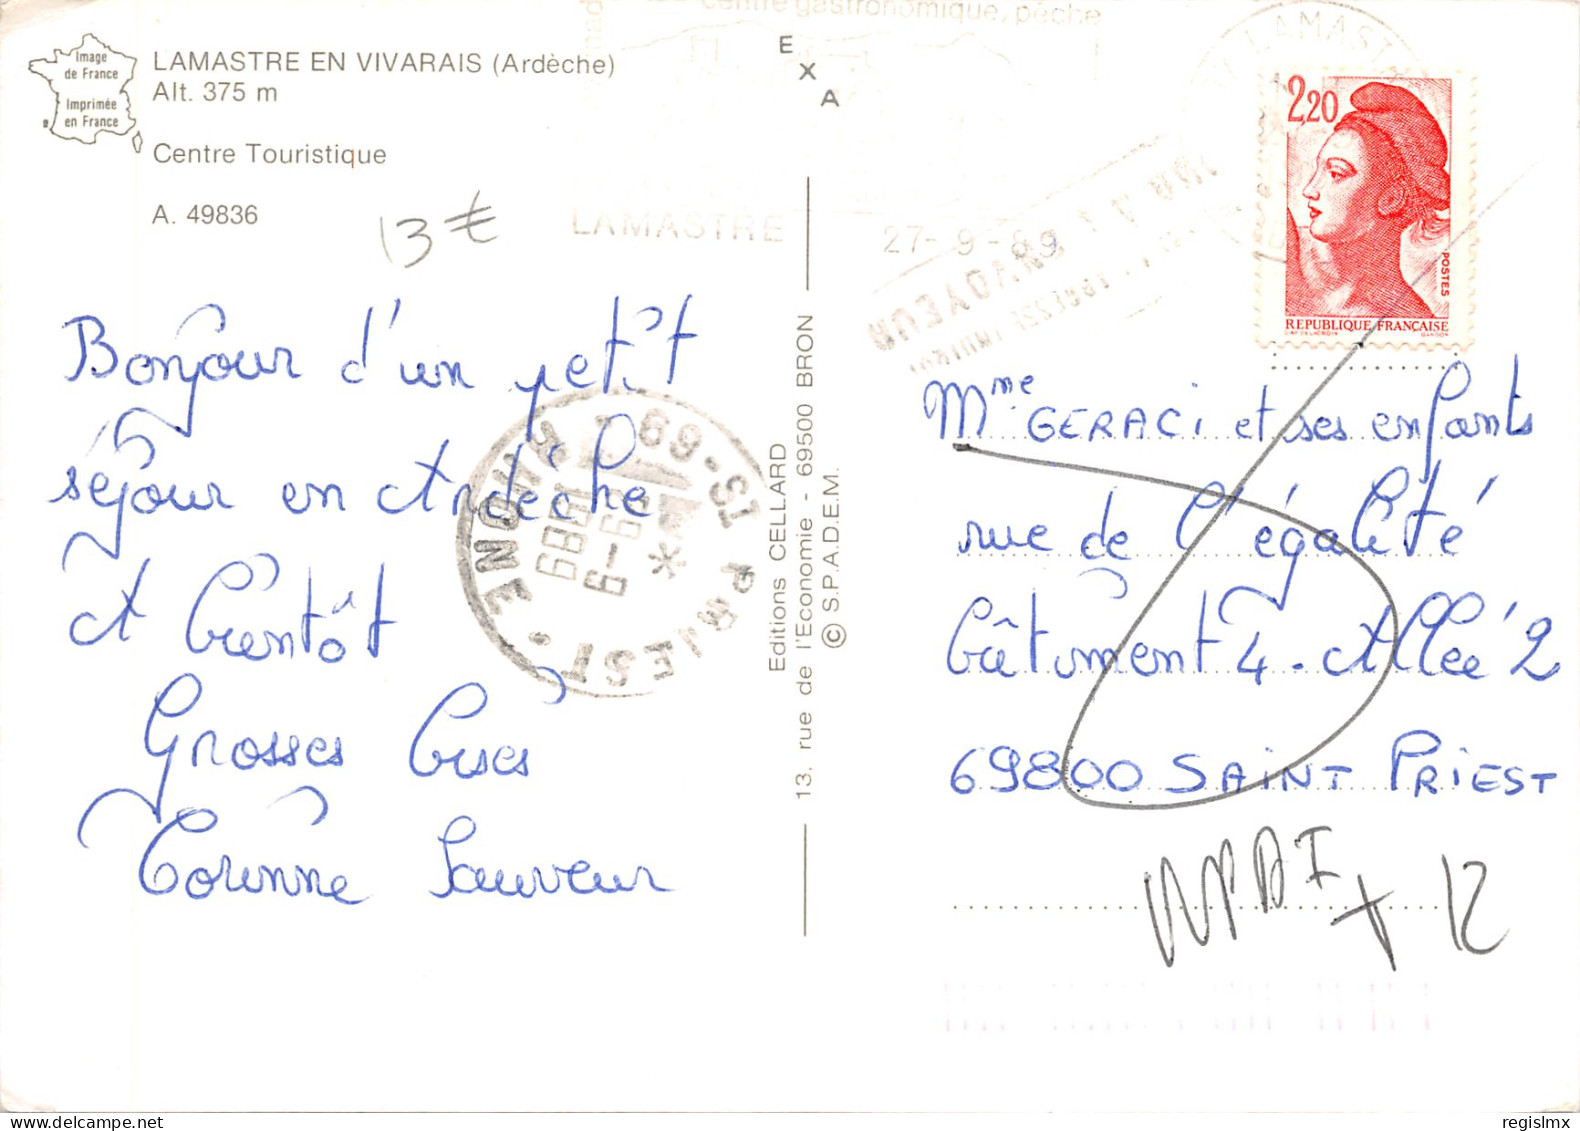 Image
de France
Imprimée
en France
LAMASTRE EN VIVARAIS (Ardèche)
Alt. 375 m
Centre Touristique
A. 49836
13 €
centre gastronomique, pêche
LAMASTRE
27- 9 - 89
E
X
A
LAMAST
ENVOYEUR
2,20
POSTES
REPUBLIQUE FRANCAISE
Bonjour d'un petit
séjour en Ardèche
A bientôt
Grosses bises
Corinne Sauveur
ST PRIEST
69
RHONE
Editions CELLARD
13, rue de l'Economie - 69500 BRON
© S.P.A.D.E.M.
Mme GERACI et ses enfants
rue de l'égalité
bâtiment 4 - Allée 2
69800 SAINT PRIEST
12
regislmx